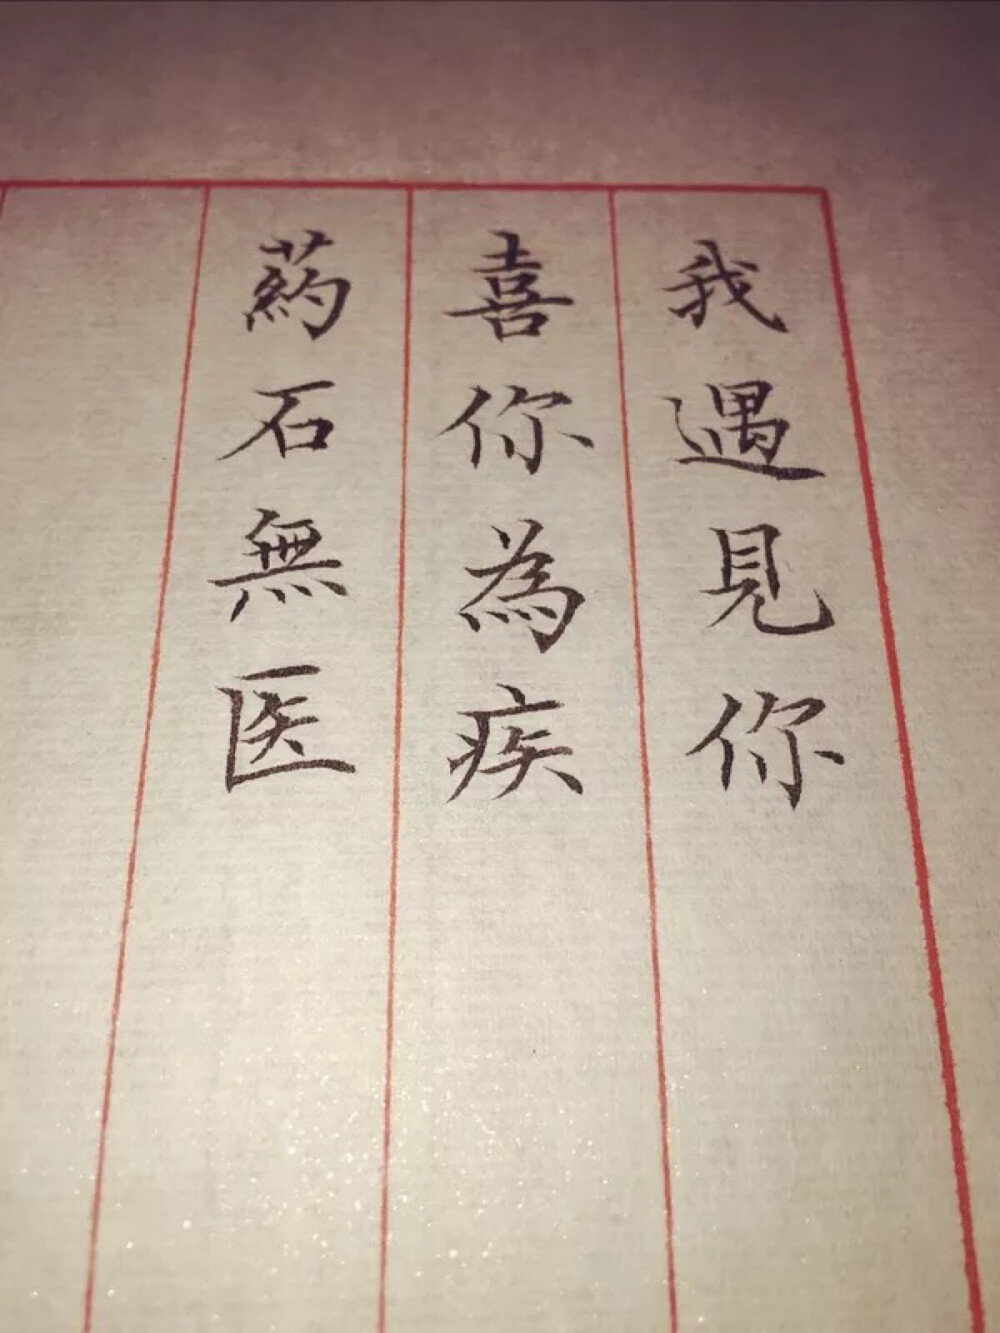 我遇見你
喜你為疾
葯石無医